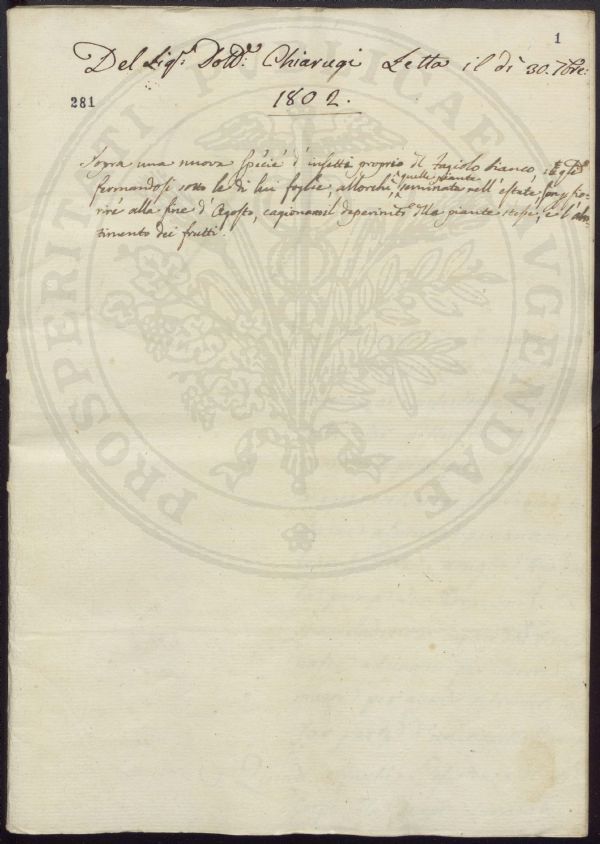 1
Del Sig.r Dott.r Chiarugi Letta il dì 30. 7bre.
281
1802.
Sopra una nuova specie d'insetti proprio del Fagiolo bianco,
quelle piante
fermandosi sotto le di lui foglie, allorchè seminata nell'estate per fio-
rire alla fine d'Agosto, cagionano il deperimto della pianta stessa, e l'abor-
timento dei frutti.
PROSPERITATI PUBLICAE AVGENDAE